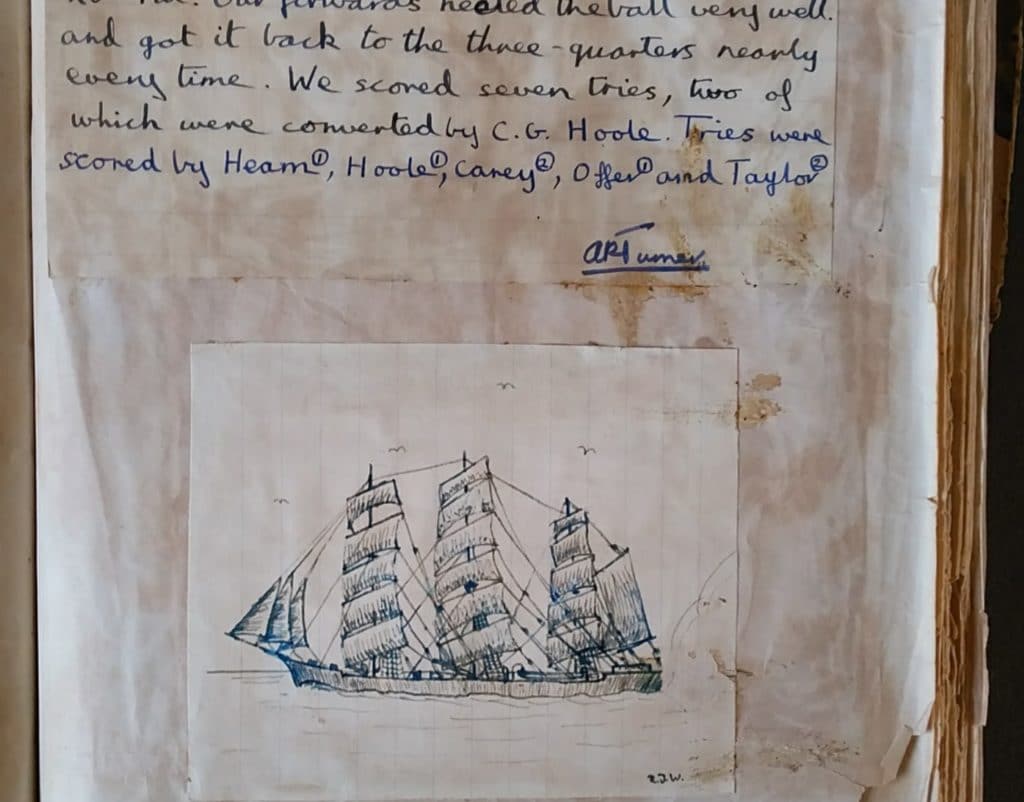 Our forwards heeled the ball very well.
and got it back to the three-quarters nearly
every time. We scored seven tries, two of
which were converted by C.G. Hoole. Tries were
scored by Hearn①, Hoole①, Carey②, Offer① and Taylor②
ARTurner.
R.J.W.